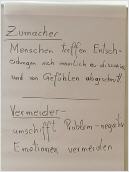 Zumacher
Menschen treffen Entsch-
eidungen sich
und von Gefühlen abgeschnitt
Vermeider-
umschifft Problem - negative
Emotionen vermeiden